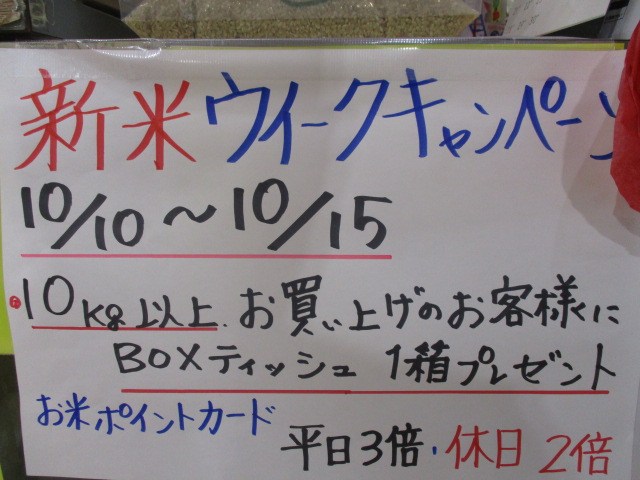 新米ウィークキャンペーン
10/10〜10/15
10kg以上、お買い上げのお客様に
BOXティッシュ 1箱プレゼント
お米ポイントカード
平日3倍・休日2倍